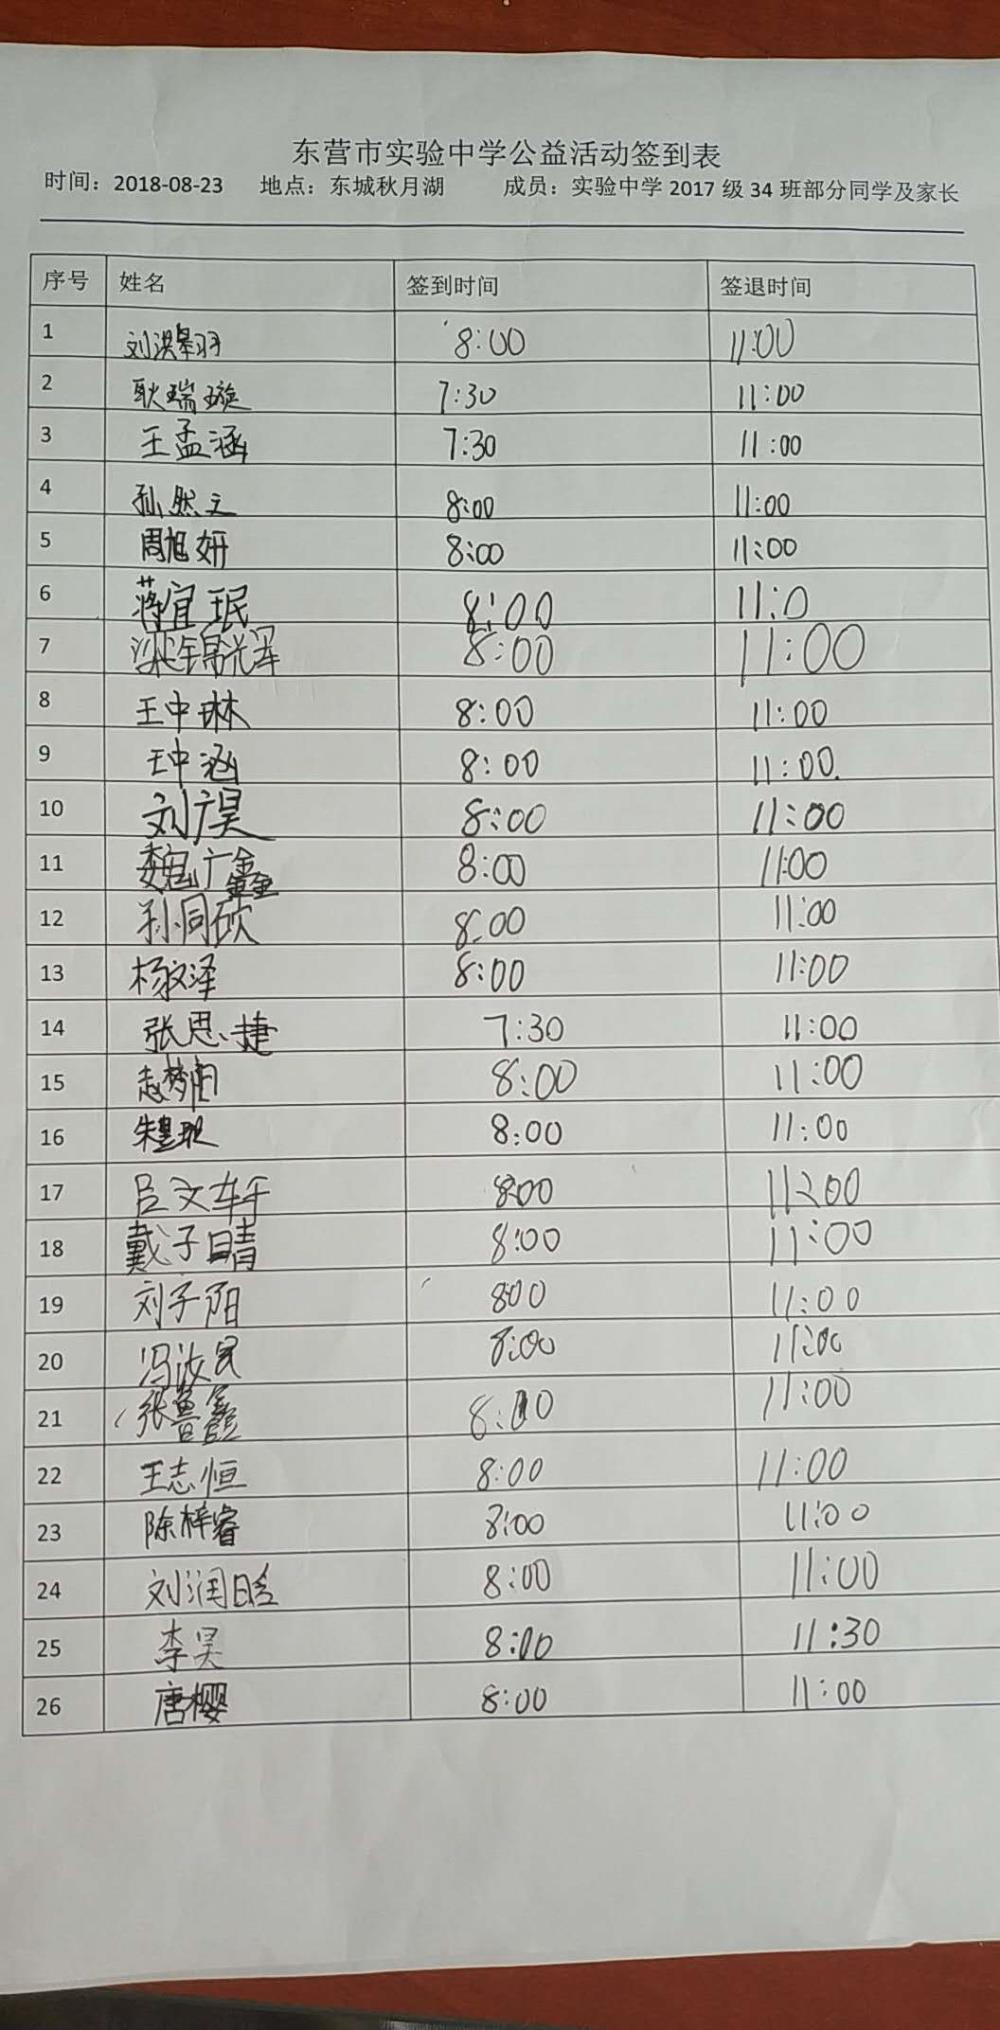 东营市实验中学公益活动签到表
时间：2018-08-23 地点：东城秋月湖 成员：实验中学 2017 级 34 班部分同学及家长
序号 姓名 签到时间 签退时间
1 刘洪 羽 8:00 11:00
2 耿瑞璇 7:30 11:00
3 王孟涵 7:30 11:00
4 孙然之 8:00 11:00
5 周旭妍 8:00 11:00
6 蒋宜珉 8:00 11:0
7 梁锦光泽 8:00 11:00
8 王中琳 8:00 11:00
9 王中涵 8:00 11:00.
10 刘广昊 8:00 11:00
11 魏广鑫 8:00 11:00
12 孙同砍 8:00 11:00
13 杨文泽 8:00 11:00
14 张思捷 7:30 11:00
15 赵梦 8:00 11:00
16 朱 8:00 11:00
17 吕文轩 8:00 11:00
18 戴子晴 8:00 11:00
19 刘子阳 8:00 11:00
20 冯汝民 8:00 11:00
21 张鲁鑫 8:00 11:00
22 王志恒 8:00 11:00
23 陈梓睿 8:00 11:00
24 刘润晗 8:00 11:00
25 李昊 8:00 11:30
26 唐樱 8:00 11:00